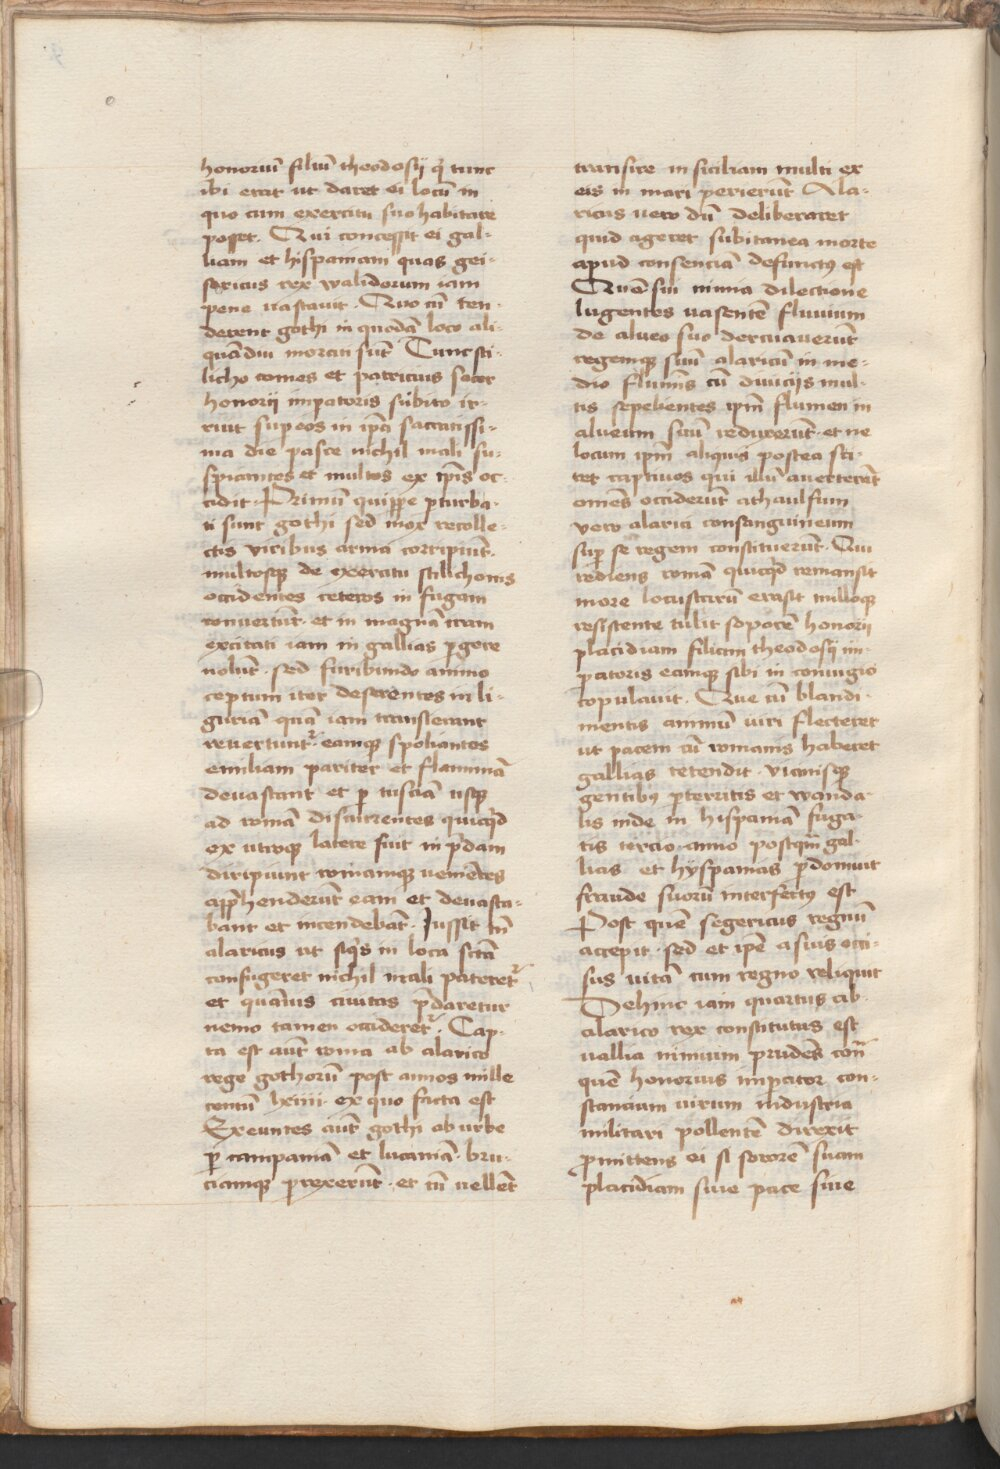 honoriū filiū theodosij q̄ tunc
ibi erat ut daret ei locū in
quo cum exercitu suo habitare
posset. Qui concessit ei gal-
liam et hispaniam quas gei-
sericus rex walidorum iam
pene uastauit. Quo cū ten-
derent gothi in quodā loco ali-
quādiu morati sūt Tunc sti-
licho comes et patricius socer
honorij impatoris subito ir-
ruit sup eos in ipā sacratissi-
ma die pasce nichil mali su-
spicantes et multos ex ipīs oc-
cidit. Primū quippe pturba-
ti sunt gothi sed mox recolle-
ctis viribus arma corripiūt.
multosqꝫ de exercitu stilichonis
occidentes ceteros in fugam
conuertūt. et in magnā iram
excitati iam in gallias pgere
nolūt. sed furibundo animo
ceptum iter deserentes in li-
guriā quā iam transierant
reuertunt̄. eamqꝫ spoliantes
emiliam pariter et flaminiā
deuastant et p tusciā usqꝫ
ad romā discurrentes quicq̄d
ex utroqꝫ latere fuit in pdam
diripiunt romamqꝫ ueniētes
apphenderūt eam et deuasta-
bant et incendebāt. Jussit tn̄
alaricus ut siq̄s in loca sctā
confugeret nichil mali pateret̄
et quāuis ciuitas pdaretur
nemo tamen occideret̄. Cap-
ta est aūt roma ab alarico
rege gothorū post annos mille
centū lxiiii. ex quo facta est
Exeuntes aūt gothi ab urbe
p campaniā et lucaniā. bru-
ciamqꝫ prexerūt. et cū uellēt
transire in siciliam multi ex
eis in mari perierūt Ala-
ricus uero dū deliberaret
quid ageret subitanea morte
apud consenciā defunctꝰ est
Quē sui nimia dilectione
lugentes uasentē fluuium
de alueo suo deriuauerūt
regemqꝫ suū alaricū in me-
dio flumīs cū diuicijs mul-
tis sepelientes ipm̄ flumen in
alueum suū reduxerūt. et ne
locum ipm̄ aliquis postea sci-
ret captiuos qui illū auerterāt
omēs occiderūt athaulfum
vero alarici consanguineum
sup se regem constituerūt. Qui
rediens romā quicq̄d remansit
more locustarū erasit nulloqꝫ
resistente tulit soporē honorij
placidiam filiam theodosij im-
patoris eamqꝫ sibi in coniugio
copulauit. Que cū blandi-
mentis animū uiri flecteret
ut pacem cū romanis haberet
gallias tetendit. vicinisqꝫ
gentibꝫ pterritis et wanda-
lis inde in hispaniā fuga-
tis tercio. anno postqm̄ gal-
lias et hyspanias pdomuit
fraude suorū interfectꝰ est
Post quē segericus regnū
accepit. sed et ipē a suis occi-
sus uitā cum regno reliquit
Dehinc iam quartus ab
alarico rex constitutus est
uallia nimium prudēs con̄
quē honorius impator con-
stancium uirum industria
militari pollentē direxit
promittens ei si sororē suam
placidiam siue pace siue